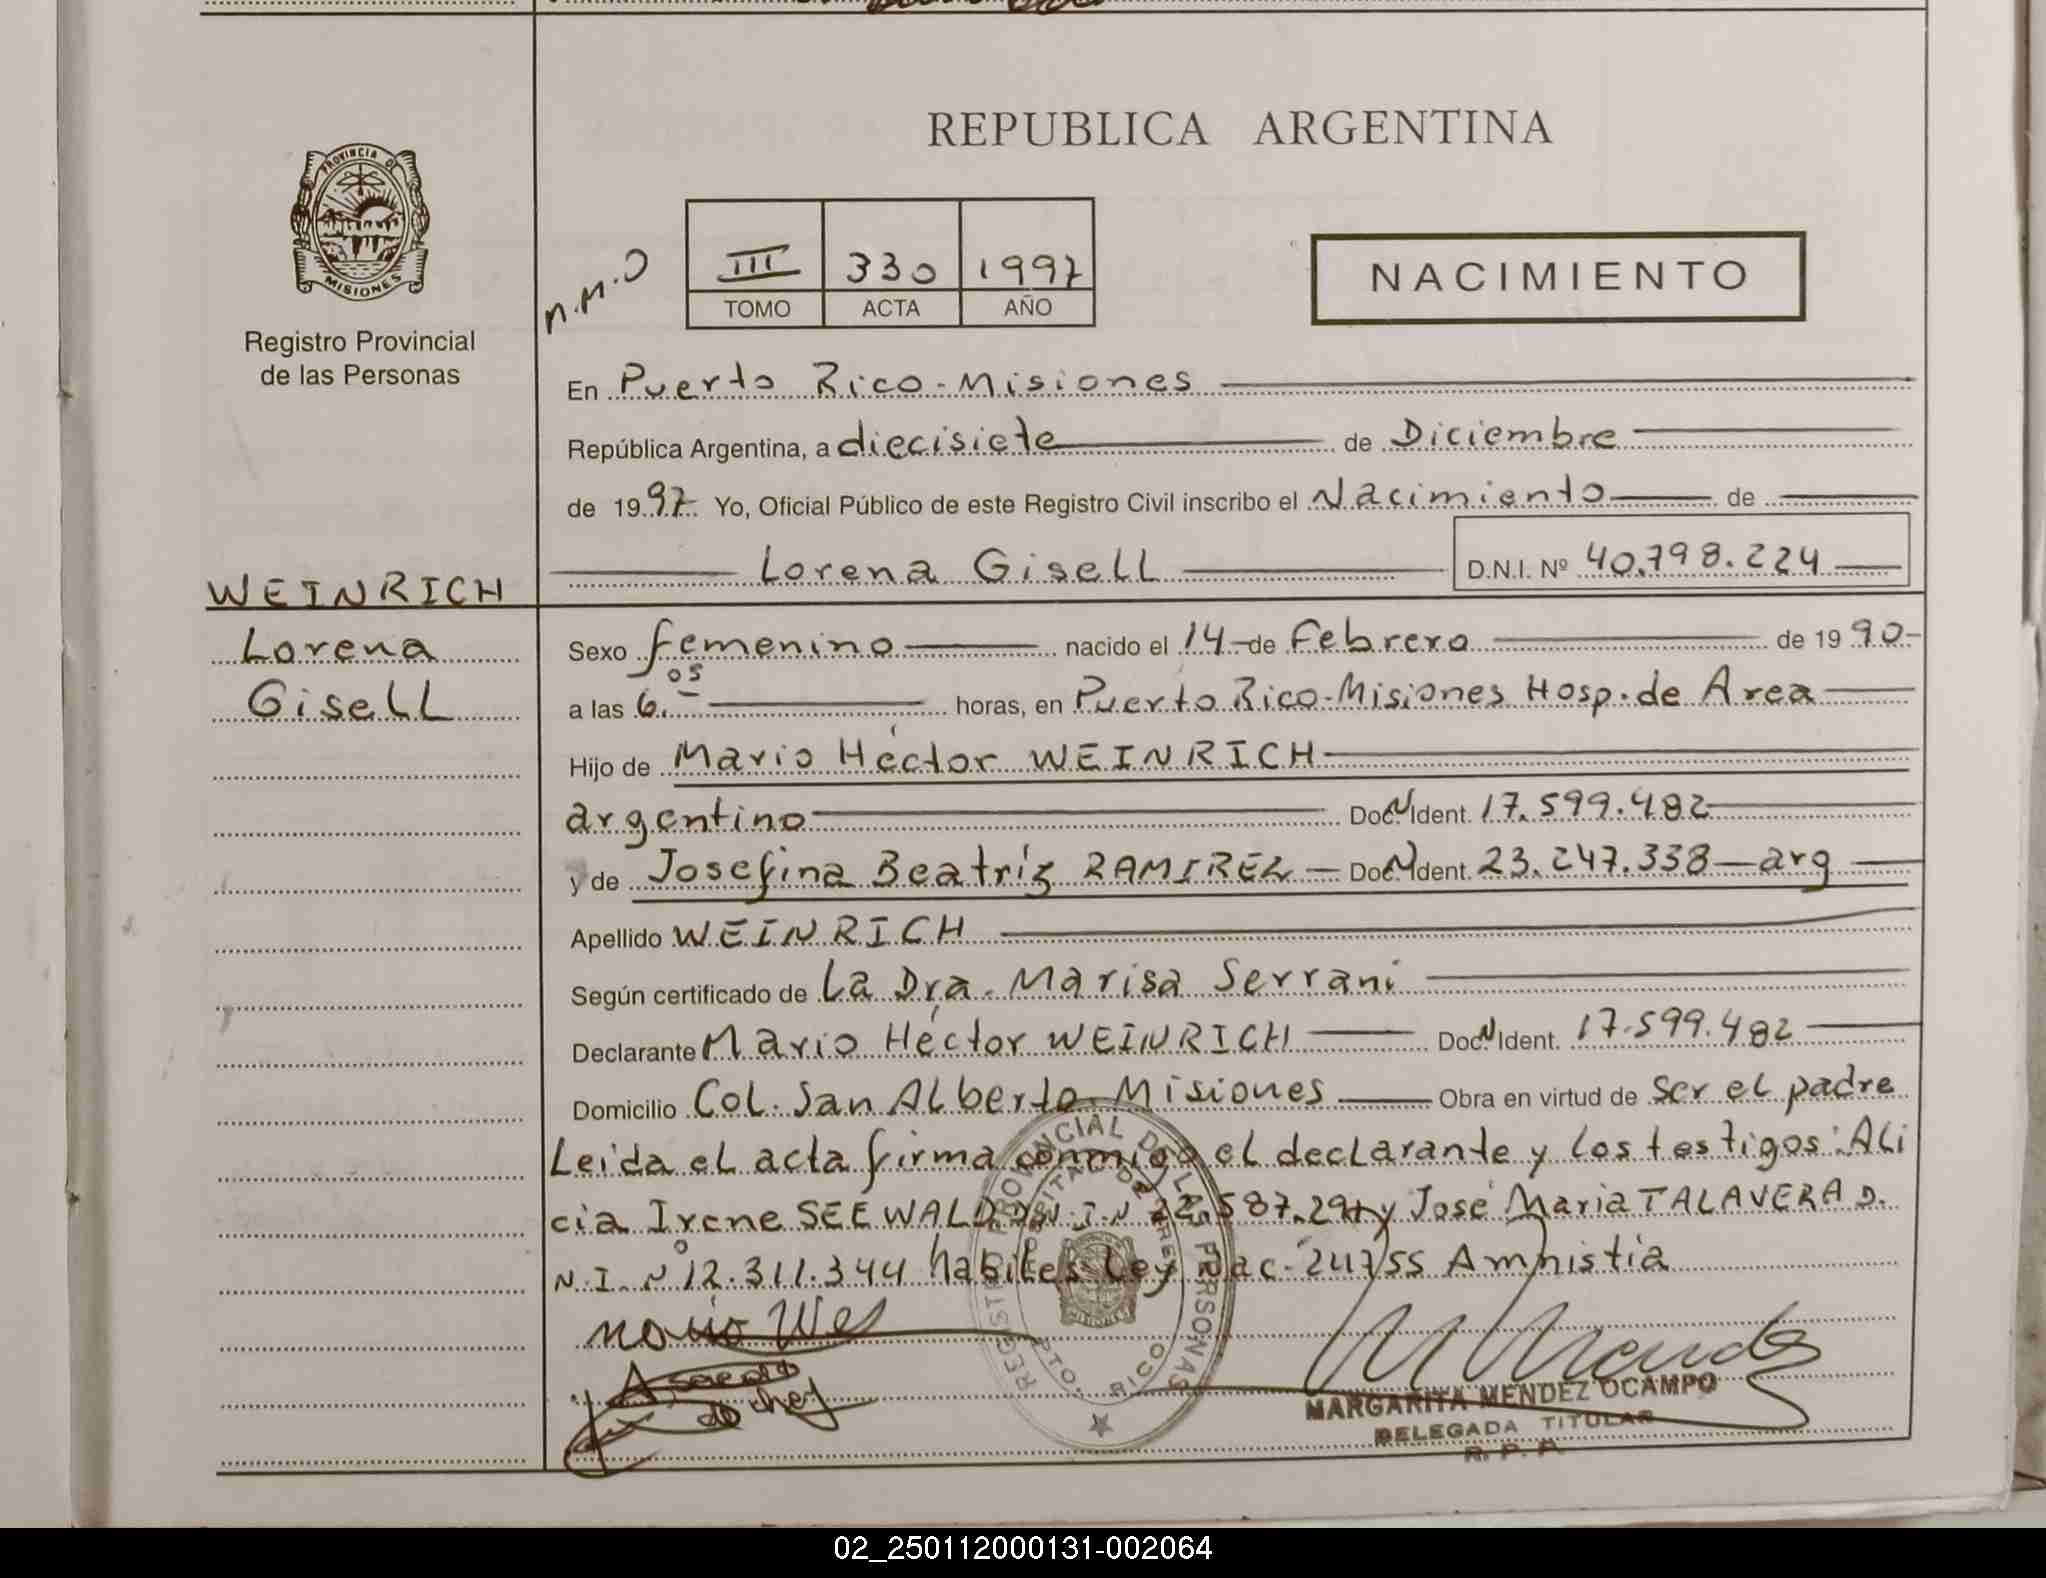 REPUBLICA ARGENTINA
PROVINCIA DE
MISIONES
Registro Provincial
de las Personas
N.M.O
III 330 1997
TOMO ACTA AÑO
NACIMIENTO
En Puerto Rico-Misiones
República Argentina, a diecisiete de Diciembre
de 1997 Yo, Oficial Público de este Registro Civil inscribo el Nacimiento de
Lorena Gisell D.N.I. Nº 40.798.224
WEINRICH
Lorena
Gisell
Sexo femenino nacido el 14 de Febrero de 1990-
a las 6.05 horas, en Puerto Rico-Misiones Hosp. de Area
Hijo de Mario Héctor WEINRICH
argentino Doc. N Ident. 17.599.482
y de Josefina Beatríz RAMIREZ Doc. N Ident. 23.247.338 arg
Apellido WEINRICH
Según certificado de La Dra. Marisa Serrani
Declarante Mario Héctor WEINRICH Doc. N Ident. 17.599.482
Domicilio Col. San Alberto Misiones Obra en virtud de Ser el padre
Leida el acta firma conmigo el declarante y los testigos: ALi
cia Irene SEEWALD D.N.I.N 22.587.29 y José Maria TALAVERA D.
N.I. Nº 12.311.344 habiles Ley Nac. 24755 Amnistia
REGISTRO PROVINCIAL DE LAS PERSONAS
PTO. RICO
MISIONES
MARGARITA MENDEZ OCAMPO
DELEGADA TITULAR
R. P. P.
02_250112000131-002064